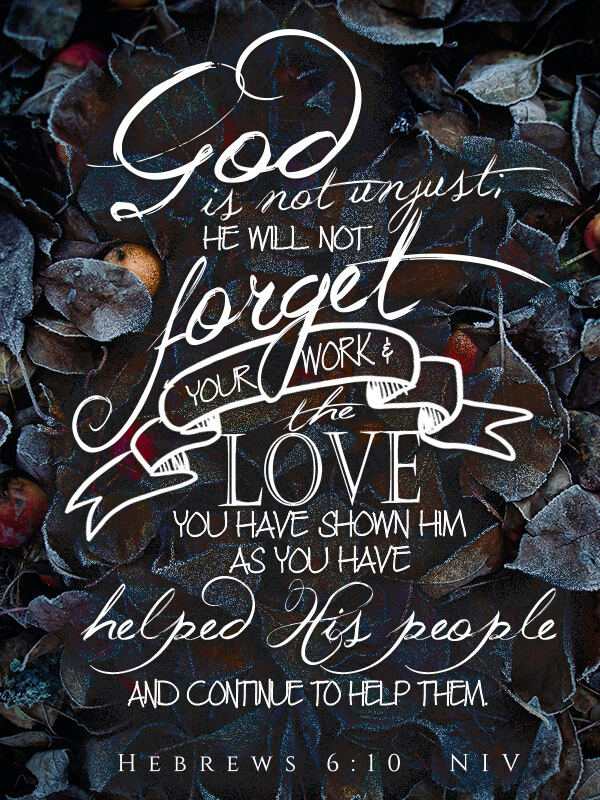 God
is not unjust;
HE WILL NOT
forget
YOUR WORK &
the
LOVE
YOU HAVE SHOWN HIM
AS YOU HAVE
helped His people
AND CONTINUE TO HELP THEM.
HEBREWS 6:10 NIV